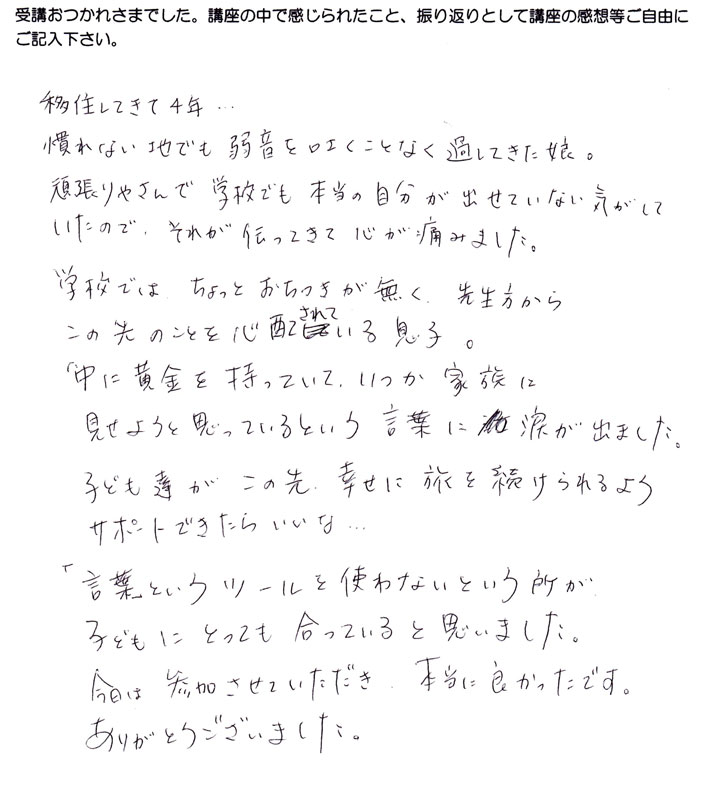 受講おつかれさまでした。講座の中で感じられたこと、振り返りとして講座の感想等ご自由に
ご記入下さい。
移住してきて4年…
慣れない地でも弱音を吐くことなく過してきた娘。
頑張りやさんで学校でも本当の自分が出せていない気がして
いたので、それが伝ってきて心が痛みました。
学校では、ちょっとおちつきが無く、先生方から
この先のことを心配されている息子。
「中に黄金を持っていて、いつか家族に
見せようと思っているという言葉に涙が出ました。
子ども達がこの先、幸せに旅を続けられるよう
サポートできたらいいな…
「言葉」というツールを使わないという所が
子どもにとっても合っていると思いました。
今日は参加させていただき、本当に良かったです。
ありがとうございました。